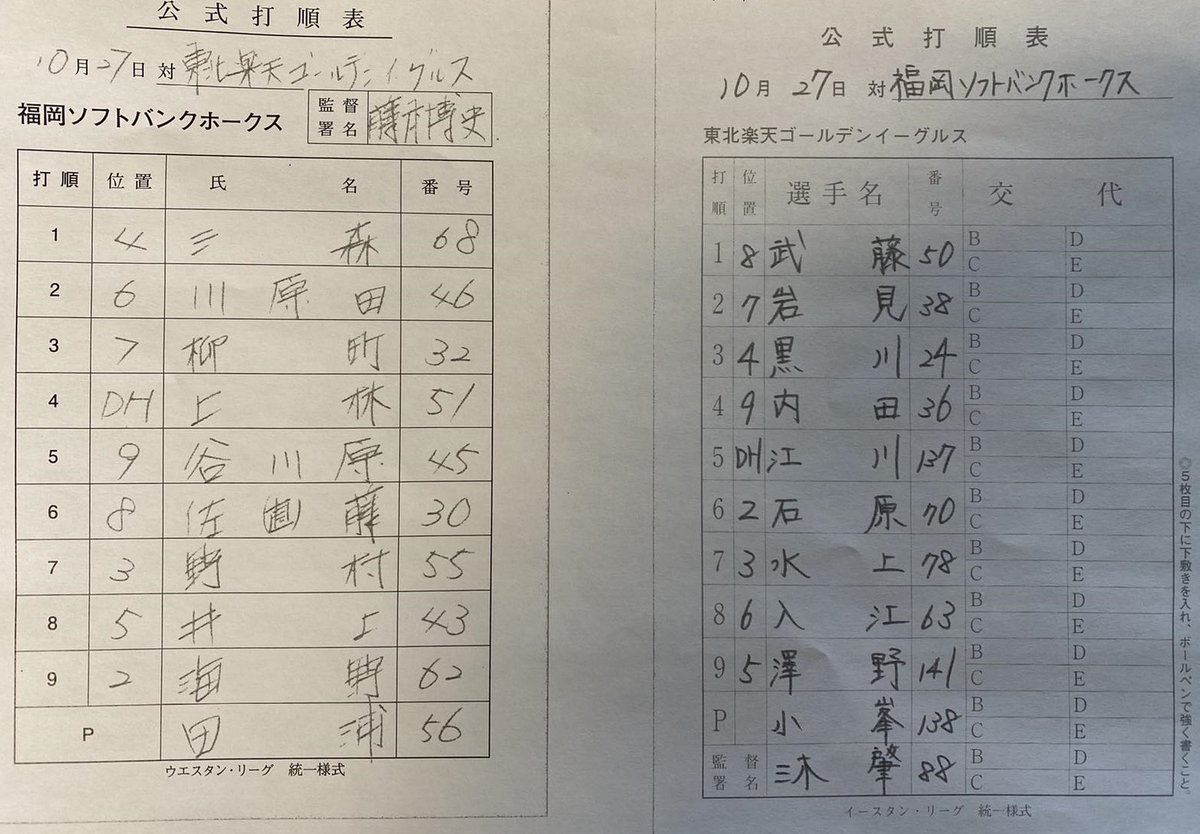 公式打順表
10月27日 対 東北楽天ゴールデンイグルス
福岡ソフトバンクホークス 監督署名 藤本博史
打順 位置 氏名 番号
1 4 三森 68
2 6 川原田 46
3 7 柳町 32
4 DH 上林 51
5 9 谷川原 45
6 8 佐藤直 30
7 3 野村 55
8 5 井上 43
9 2 海野 62
P 田浦 56
ウエスタン・リーグ 統一様式
公式打順表
10月 27日 対 福岡ソフトバンクホークス
東北楽天ゴールデンイーグルス
打順 位置 選手名 番号 交代
1 8 武藤 50 B D
C E
2 7 岩見 38 B D
C E
3 4 黒川 24 B D
C E
4 9 内田 36 B D
C E
5 DH 江川 137 B D
C E
6 2 石原 70 B D
C E
7 3 水上 78 B D
C E
8 6 入江 63 B D
C E
9 5 澤野 141 B D
C E
P 小峯 138 B D
C E
監督署名 三木肇 88 B D
C E
イースタン・リーグ 統一様式
◎5枚目の下に下敷きを入れ、ボールペンで強く書くこと。